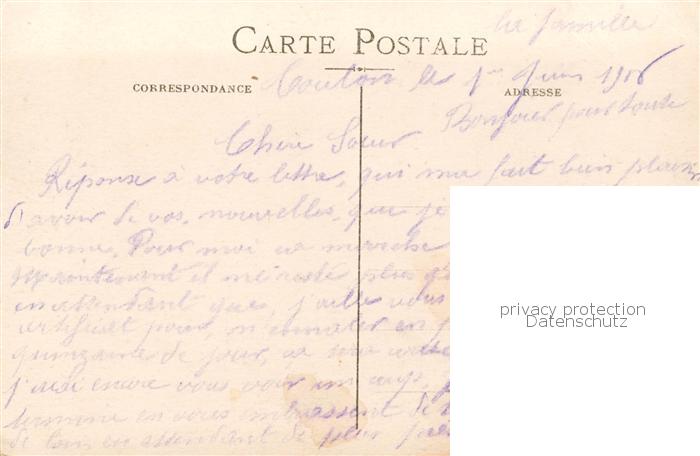 la famille
CARTE POSTALE
CORRESPONDANCE
ADRESSE
Toulon le 1er Juin 1906
Bonjour pour toute
Chère Soeur
Réponse à votre lettre, qui me fait bien plaisir
d'avoir de vos nouvelles, que je
bonne. Pour moi ca marche
Maintenant il me reste plus q
en attendant que, j'aille vous
artificiel pour, m'emmener en
quinzaine de jour, ca sera
j'irai encore vous voir un coup,
termine en vous embrassent de
de loin en attendant de plus près
privacy protection
Datenschutz